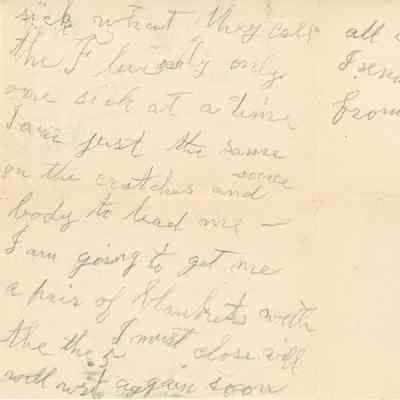 sick what they call
the F lu only only
one sick at a time
I am just the same
on the crutches and some
body to lead me —
I am going to get me
a pair of blankets with
the the 5 I must close will
will write again soon
all
I sen
from